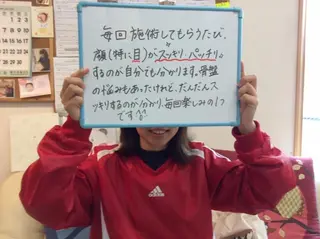 毎回施術してもらうたび、
顔(特に目)がスッキリ、パッチリ
するのが自分でも分かります。骨盤
の悩みもあったけれど、だんだんス
ッキリするのが分かり、毎回楽しみの1つ
です
adidas